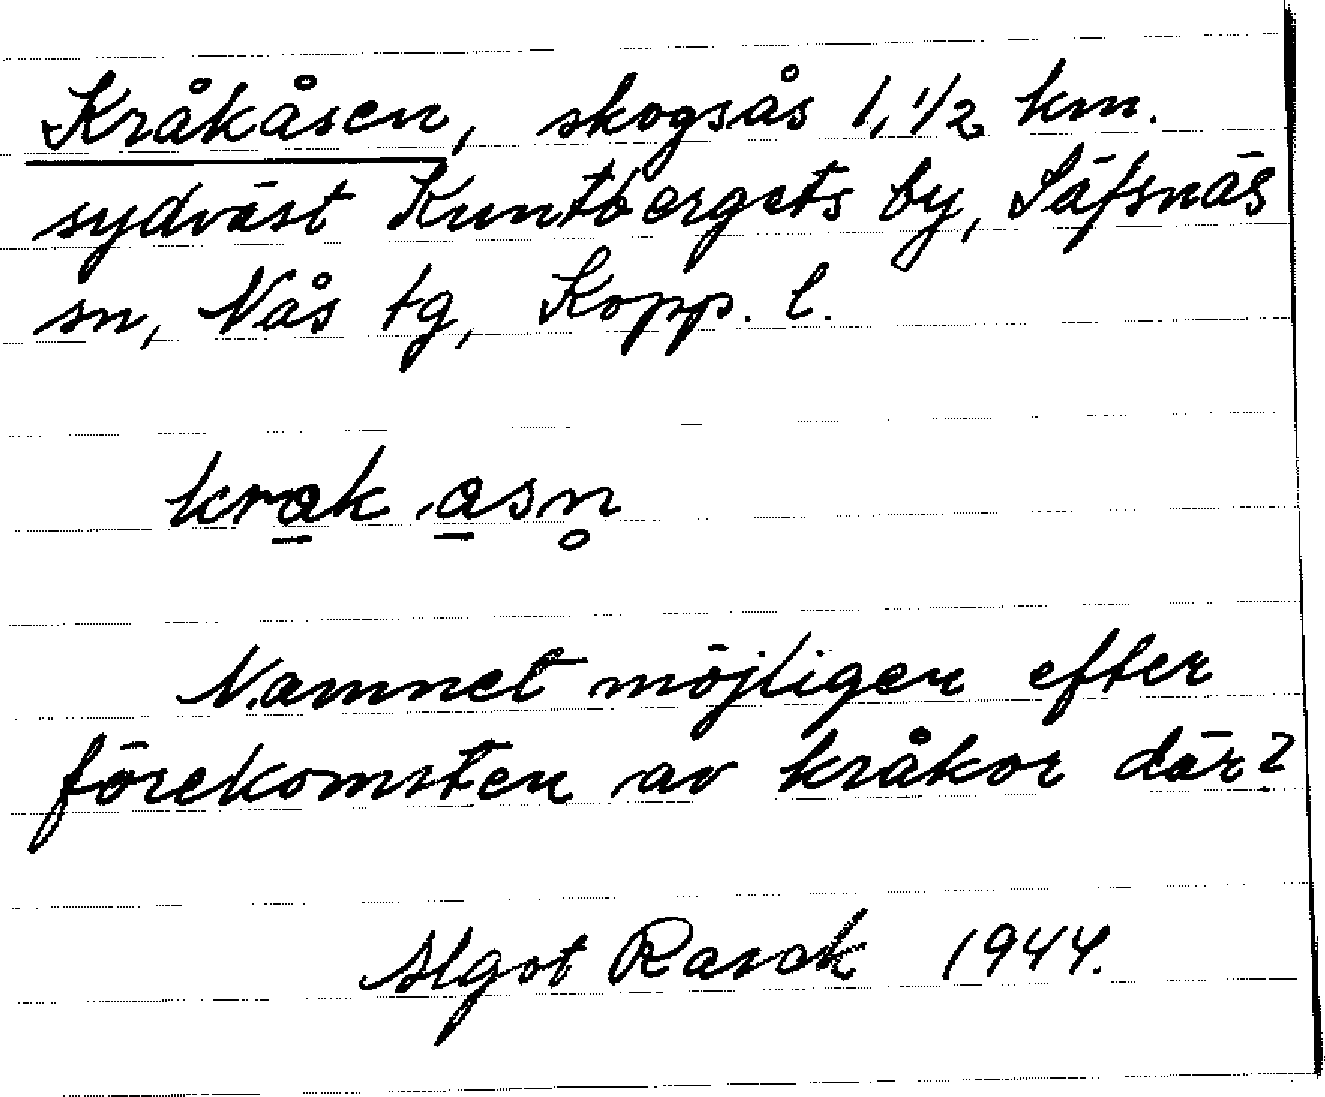 Kråkåsen, skogsås 1,1/2 km.
sydväst Kuntbergets by, Säfsnäs
sn, Nås tg, Kopp. l.
kra̲k a̲sn̥
Namnet möjligen efter
förekomsten av kråkor där?
Algot Rask 1944.